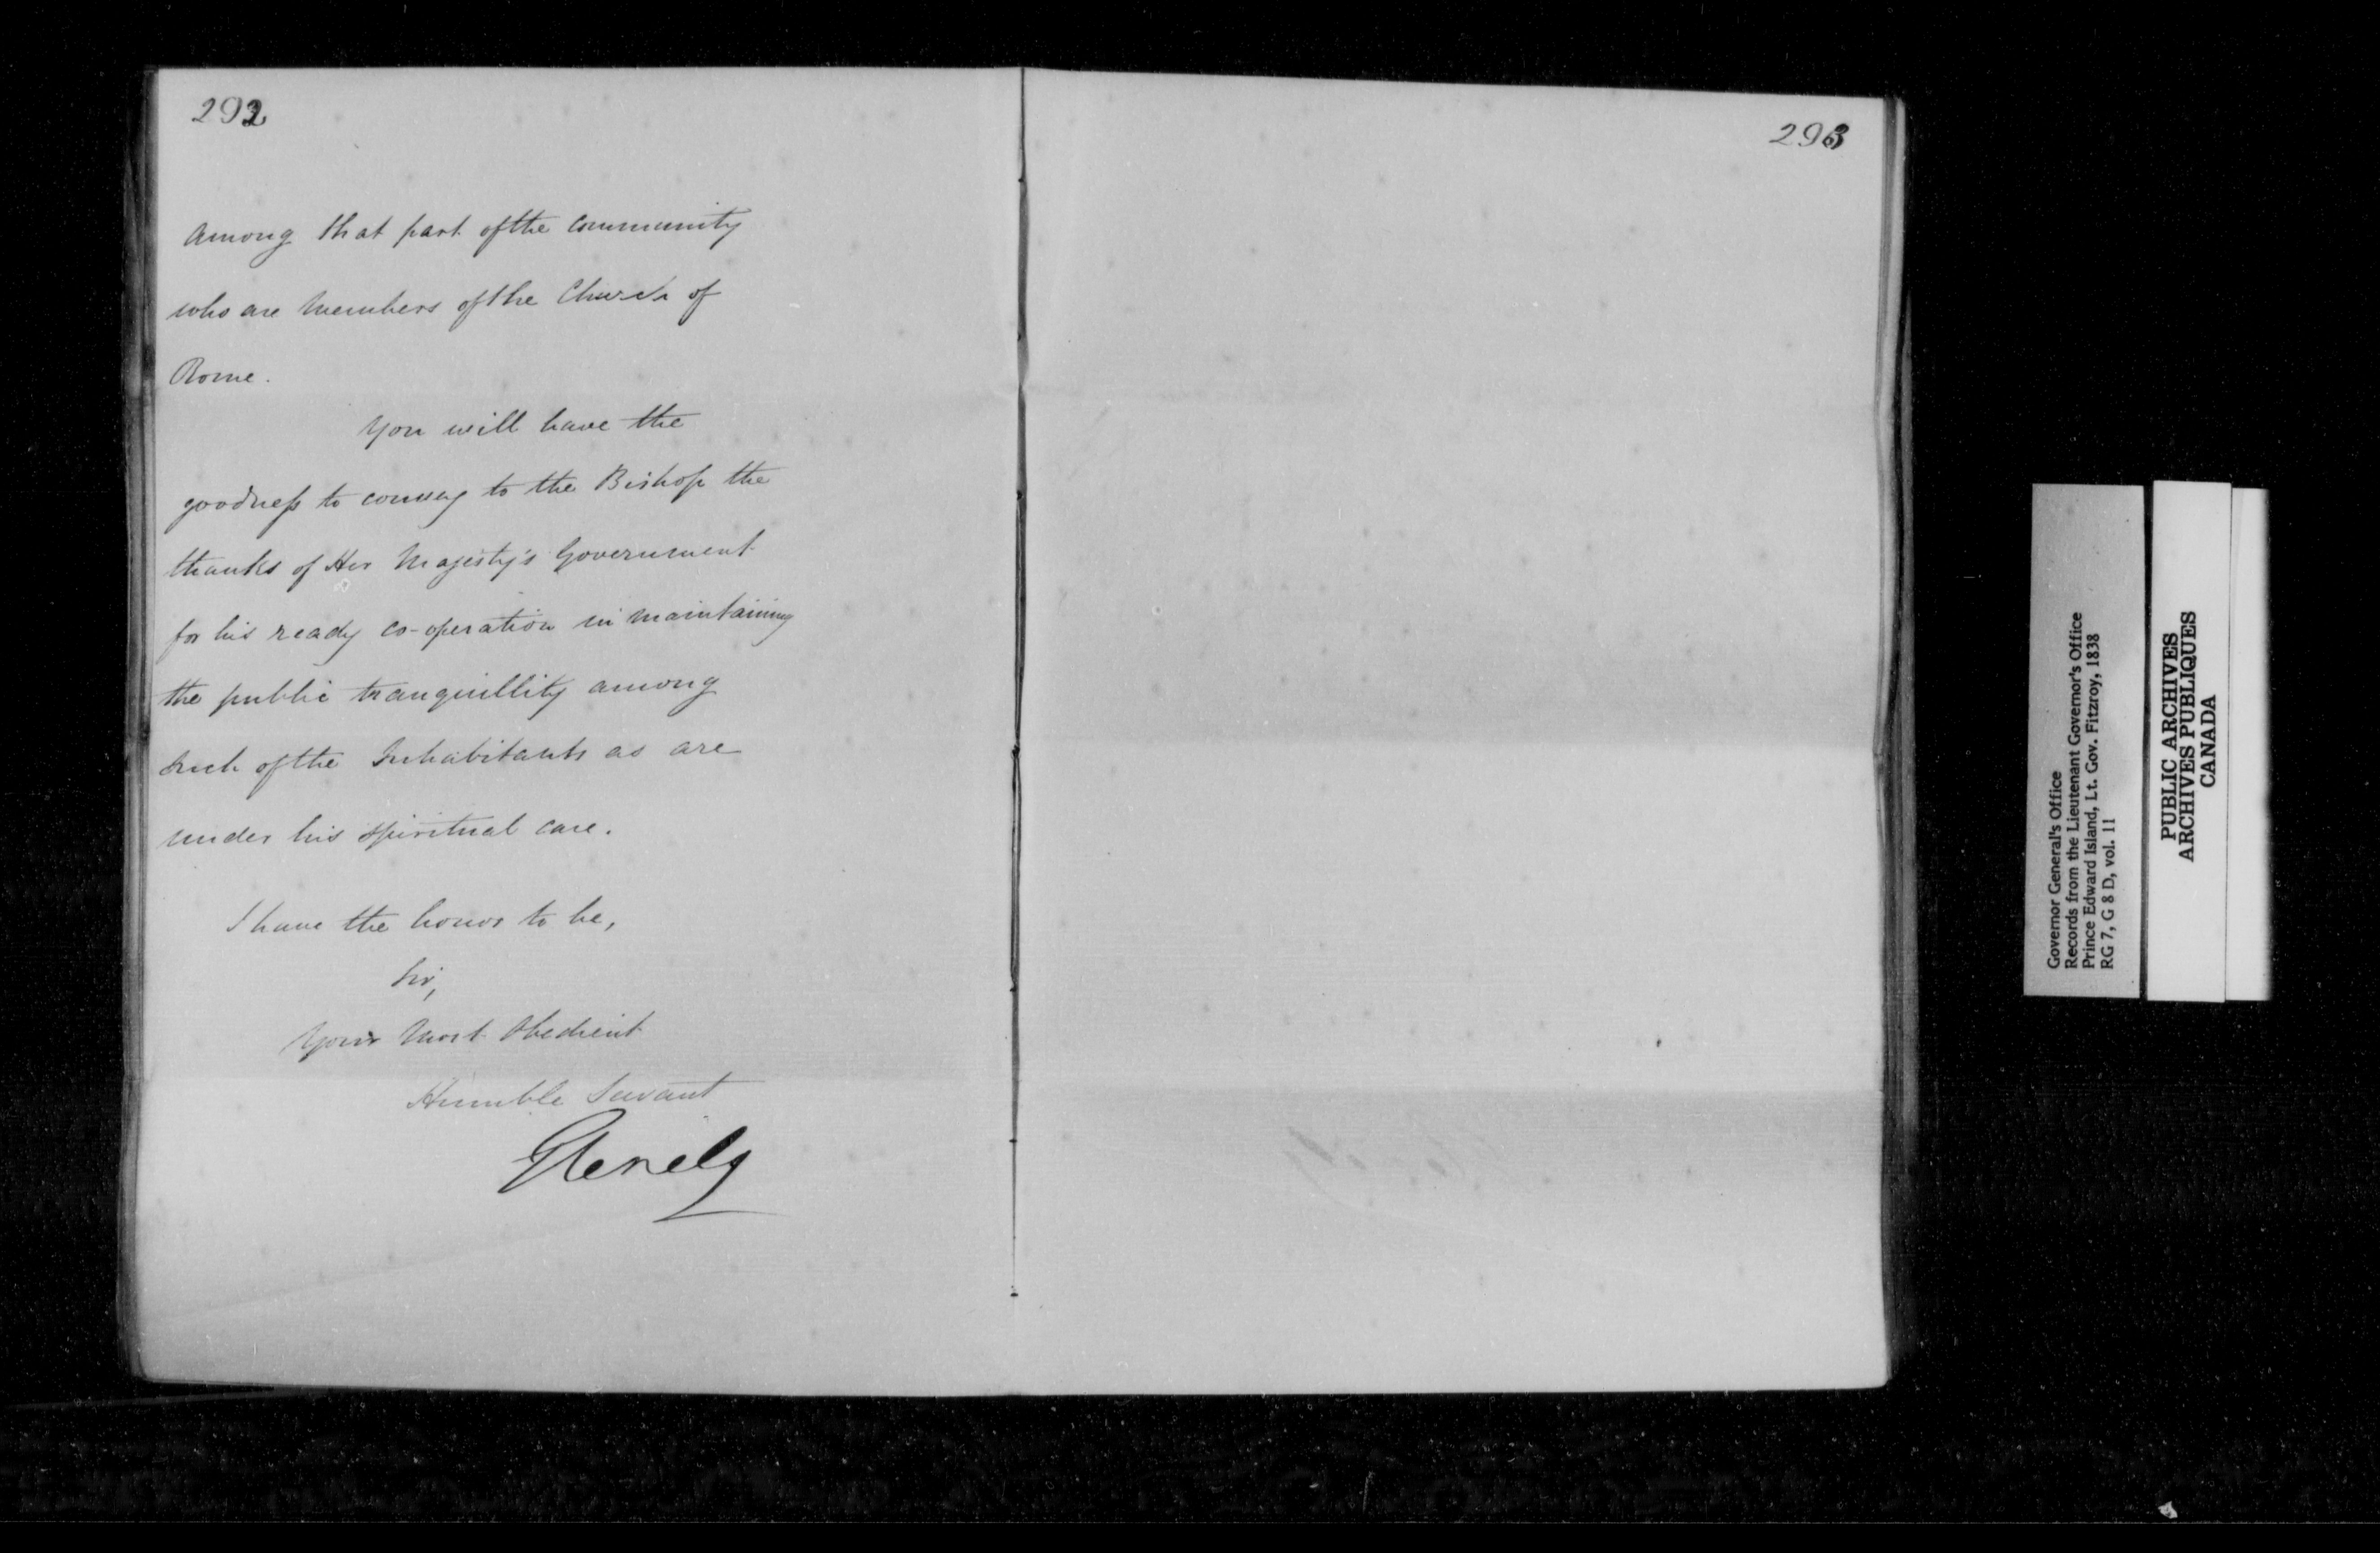 292
among that part of the community
who are Members of the Church of
Rome.
You will have the
goodness to convey to the Bishop the
thanks of Her Majesty's Government
for his ready co-operation in maintaining
the public tranquillity among
such of the Inhabitants as are
under his spiritual care.
I have the honor to be,
Sir,
Your Most Obedient
Humble Servant
Glenelg
293
Governor General's Office
Records from the Lieutenant Governor's Office
Prince Edward Island, Lt. Gov. Fitzroy, 1838
RG 7, G 8 D, vol. 11
PUBLIC ARCHIVES
ARCHIVES PUBLIQUES
CANADA